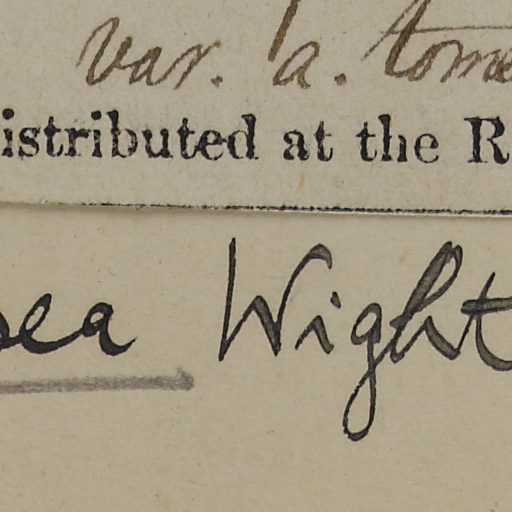 var. a. tome
istributed at the R
sea Wight